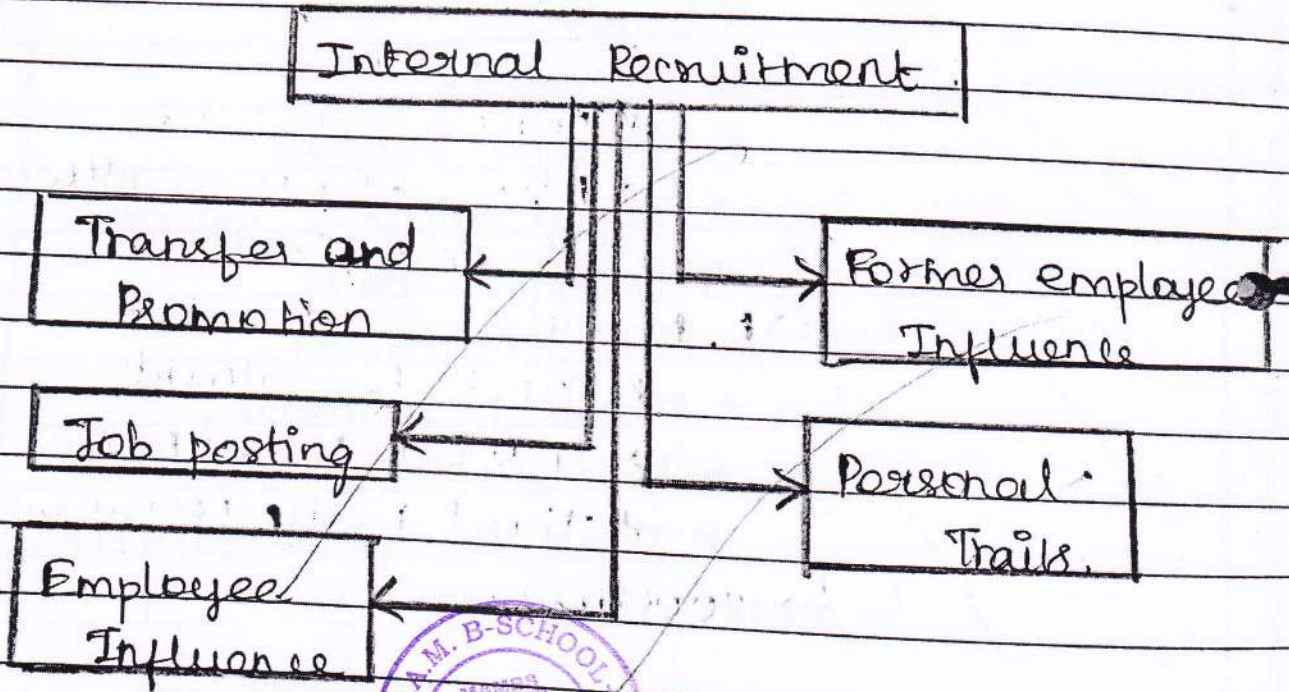 Internal Recruitment.
Transfer and
Promotion
Job posting
Employee
Influence
Former employee
Influence
Personal
Traits.
A.M. B-SCHOOL,